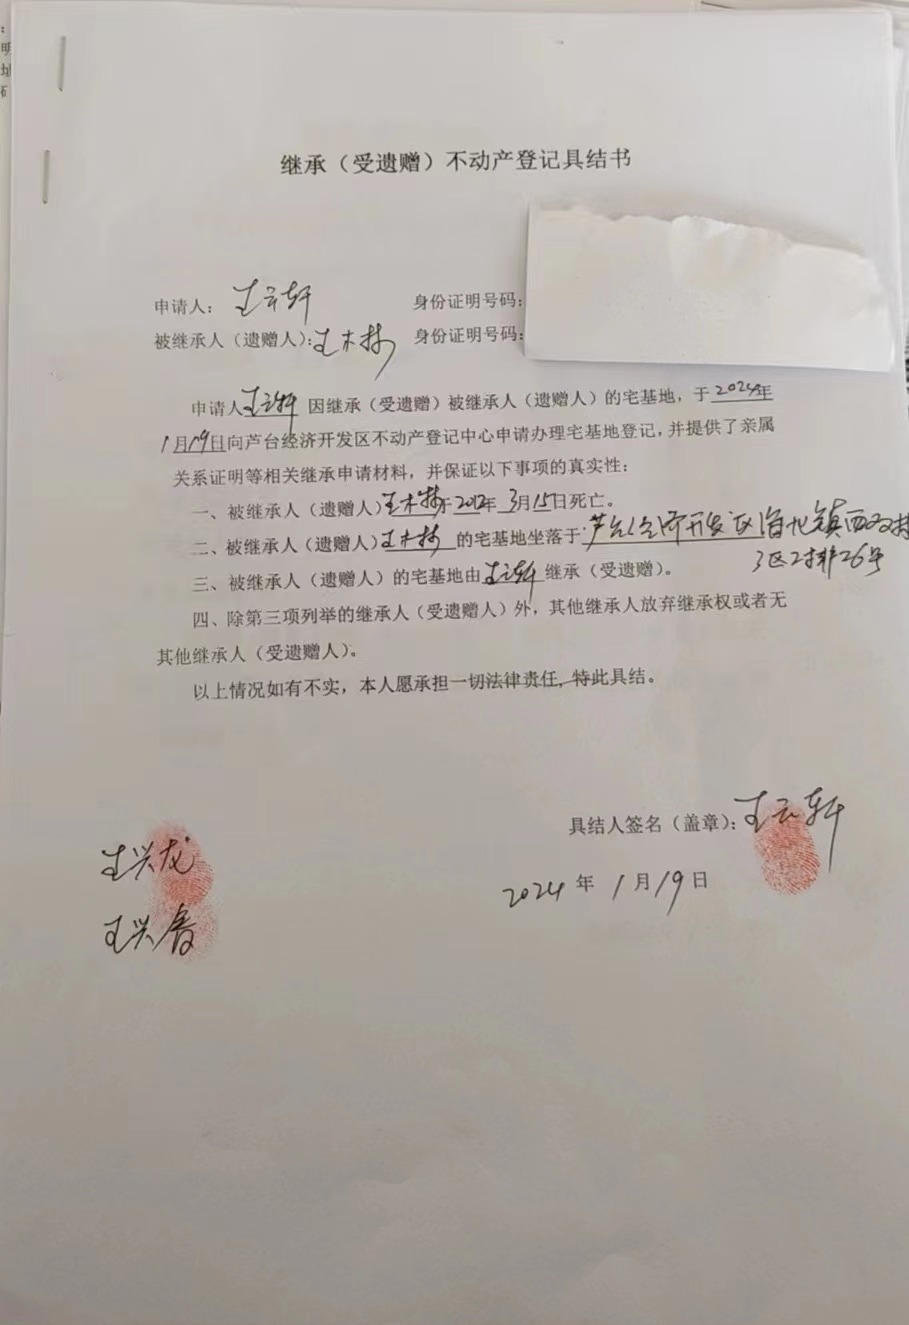 继承（受遗赠）不动产登记具结书
申请人： 王云轩 身份证明号码：
被继承人（遗赠人）：王木林 身份证明号码：
申请人王云轩因继承（受遗赠）被继承人（遗赠人）的宅基地，于2024年
1月19日向芦台经济开发区不动产登记中心申请办理宅基地登记，并提供了亲属
关系证明等相关继承申请材料，并保证以下事项的真实性：
一、被继承人（遗赠人）王木林于2012年3月15日死亡。
二、被继承人（遗赠人）王木林的宅基地坐落于芦台经济开发区海北镇西双村
3区2排26号
三、被继承人（遗赠人）的宅基地由王云轩继承（受遗赠）。
四、除第三项列举的继承人（受遗赠人）外，其他继承人放弃继承权或者无
其他继承人（受遗赠人）。
以上情况如有不实，本人愿承担一切法律责任，特此具结。
具结人签名（盖章）：王云轩
王兴龙
2024年1月19日
王兴春